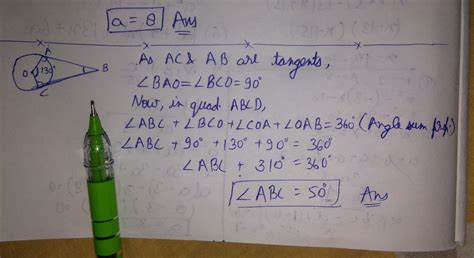 a = θ Ans
As AC & AB are tangents,
∠BAO = ∠BCO = 90°
Now, in quad ABCD,
∠ABC + ∠BCO + ∠COA + ∠OAB = 360° (Angle sum prop.)
∠ABC + 90° + 130° + 90° = 360°
∠ABC + 310° = 360°
∠ABC = 50° Ans
A
O 130° B
C